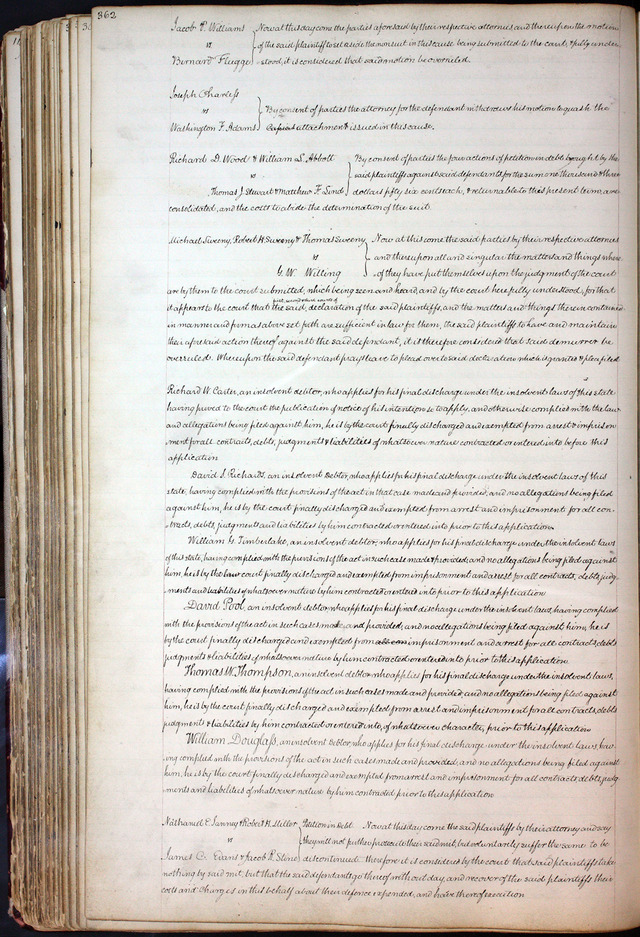 362
Jacob P. Williams } Now at this day come the parties aforesaid by their respective attornies and thereupon the motion
vs of the said plaintiff to set aside the nonsuit in this cause being submitted to the court, & fully under-
Bernard Flugge stood, it is considered that said motion be overruled.
Joseph Charless
vs } By consent of parties the attorney for the defendant withdraws his motion to quash the
Washington F. Adams attachment issued in this cause.
Richard D. Wood & William S. Abbott } By consent of parties the four actions of petition in debt brought by the
vs said plaintiffs against said defendants for the sum one thousand & three
Thomas J. Stewart & Matthew F. dollars fifty six cents each, & returnable to this present term, are
consolidated, and the costs to abide the determination of the suit.
Michael Sweeny, Robert H. Sweeny & Thomas Sweeny } Now at this come the said parties by their respective attornies
vs and thereupon all and singular the matters and things where
G. W. Willing of they have put themselves upon the judgment of the court
are by them to the court submitted, which being seen and heard, and by the court here fully understood, for that
it appears to the court that the said, declaration of the said plaintiffs, and the matters and things therein contained
in manner and form as above set forth are sufficient in law for them, the said plaintiffs to have and maintain
their aforesaid action thereof against the said defendant, it is therefore considered that said demurrer be
overruled. Whereupon the said defendant prays leave to plead over to said declaration which is granted & plea filed
Richard W. Carter, an insolvent debtor, who applies for his final discharge under the insolvent laws of this state
having proved to the court the publication of notice of his intention so to apply, and otherwise complied with the law
and allegations being filed against him, he is by the court finally discharged and exempted from arrest & imprison-
ment for all contracts, debts, judgments & liabilities of whatsoever nature contracted or entered into before this
application
David S. Richards, an insolvent debtor, who applies for his final discharge under the insolvent laws of this
state, having complied with the provisions of the act in that case made and provided, and no allegations being filed
against him, he is by the court finally discharged and exempted from arrest and imprisonment for all con-
tracts, debts, judgments and liabilities by him contracted or entered into prior to this application.
William G. Timberlake, an insolvent debtor, who applies for his final discharge under the insolvent laws
of this state, having complied with the provisions of the act in such case made & provided, and no allegations being filed against
him, he is by the court finally discharged and exempted from imprisonment and arrest for all contracts, debts, judg-
ments and liabilities of whatsoever nature by him contracted or entered into prior to this application
David Pool, an insolvent debtor who applies for his final discharge under the insolvent laws, having complied
with the provisions of the act in such cases made, and provided, and no allegations being filed against him, he is
by the court finally discharged and exempted from imprisonment and arrest for all contracts, debts
judgments & liabilities of whatsoever nature by him contracted or entered into prior to this application.
Thomas W. Thompson, an insolvent debtor who applies for his final discharge under the insolvent laws,
having complied with the provisions of the act in such cases made and provided, and no allegations being filed against
him, he is by the court finally discharged and exempted from arrest and imprisonment for all contracts, debts
judgments & liabilities by him contracted or entered into, of whatsoever character, prior to this application
William Douglass, an insolvent debtor, who applies for his final discharge under the insolvent laws, hav-
ing complied with the provisions of the act in such cases made and provided, and no allegations being filed against
him, he is by the court finally discharged and exempted from arrest and imprisonment for all contracts, debts, judg-
ments and liabilities of whatsoever nature by him contracted prior to this application
Nathaniel E. & Robert H. Miller } Petition in Debt Now at this day come the said plaintiffs by their attorney and say
vs they will not further prosecute their said suit, but voluntarily suffer the same to be
James C. Evans & Jacob R. Stine discontinued therefore it is considered by the court that said plaintiffs take
nothing by said writ, but that the said defendants go thereof without day, and recover of the said plaintiffs their
costs and charges in this behalf about their defence expended, and have thereof execution